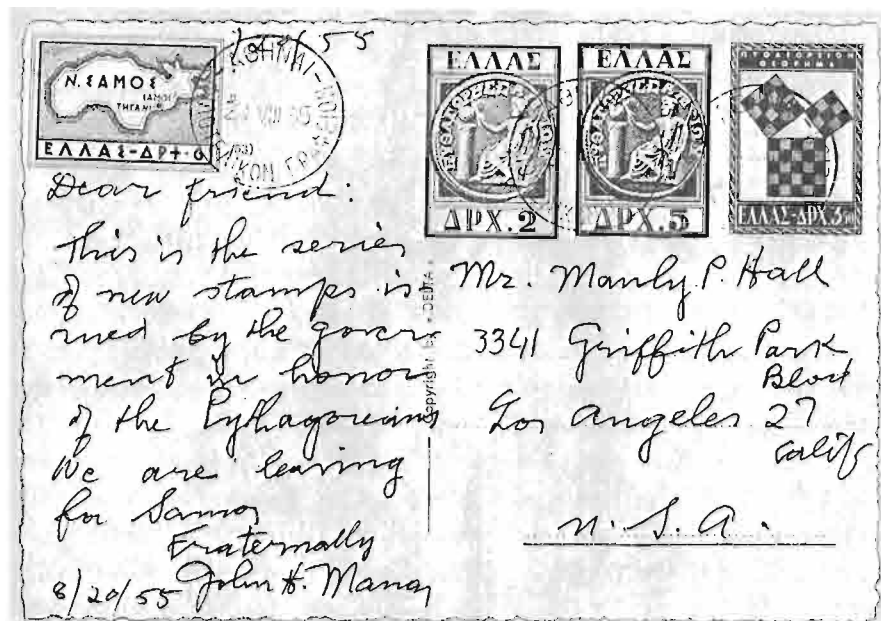 Ν. ΣΑΜΟΣ
ΣΑΜΟΣ
ΤΗΓΑΝΙ
ΕΛΛΑΣ-ΔΡ
ΑΘΗΝΑΙ
ΕΛΛΑΣ
ΠΥΘΑΓΟΡΗΣ ΣΑΜΙΩΝ
ΔΡΧ.2
ΕΛΛΑΣ
ΔΡΧ.5
ΠΥΘΑΓΟΡΕΙΟΝ
ΘΕΩΡΗΜΑ
ΕΛΛΑΣ-ΔΡΧ.3
Dear friend:
This is the series
of new stamps is-
sued by the govern
ment in honor
of the Pythagoreans
We are leaving
for Samos
Fraternally
8/20/55 John H. Manas
Copyright by • DELTA •
Mr. Manly P. Hall
3341 Griffith Park
Blvd
Los Angeles 27
Calif
U. S. A.